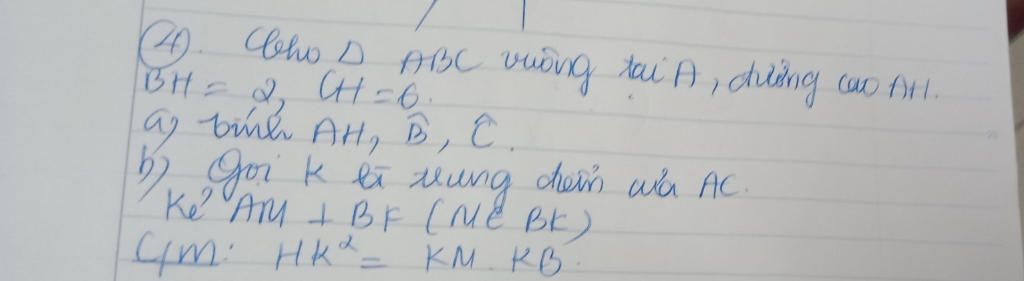 ④. Cho Δ ABC vuông tại A, đường cao AH.
BH = 2, CH = 6.
a) tính AH, B̂, Ĉ.
b) Gọi K là trung điểm của AC.
Kẻ AM ⊥ BK (M ∈ BK)
C/m: HK² = KM. KB.